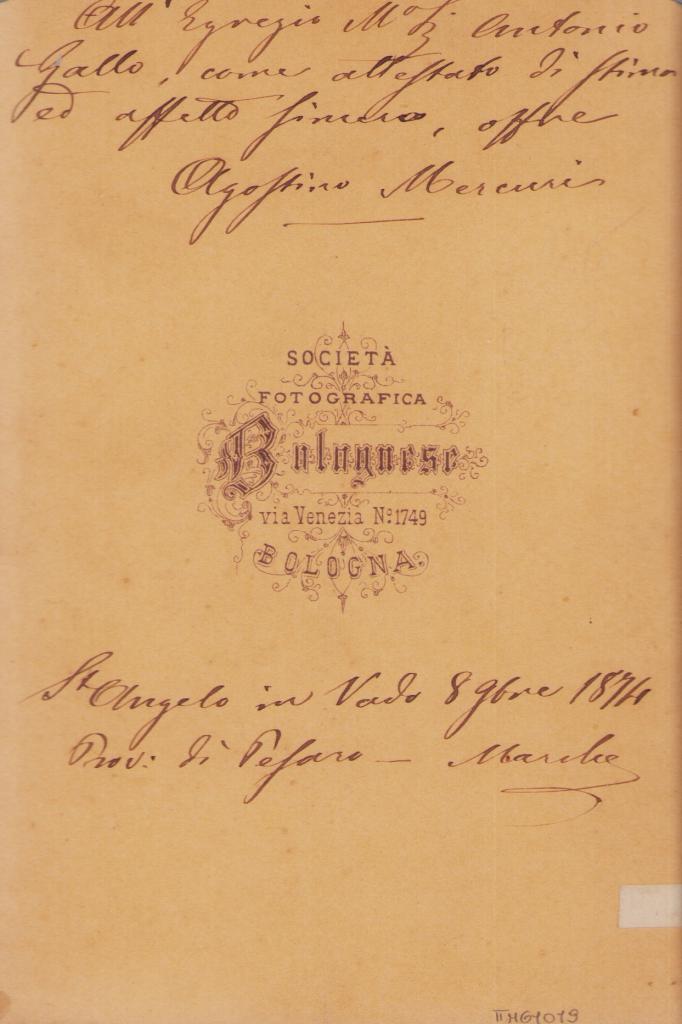 All' Egregio M.º Sig. Antonio
Gallo, come attestato di stima
ed affetto sincero, offre
Agostino Mercuri
SOCIETÀ
FOTOGRAFICA
Bolognese
via Venezia Nº 1749
BOLOGNA.
St Angelo in Vado 8 9bre 1874
Prov: di Pesaro — Marche